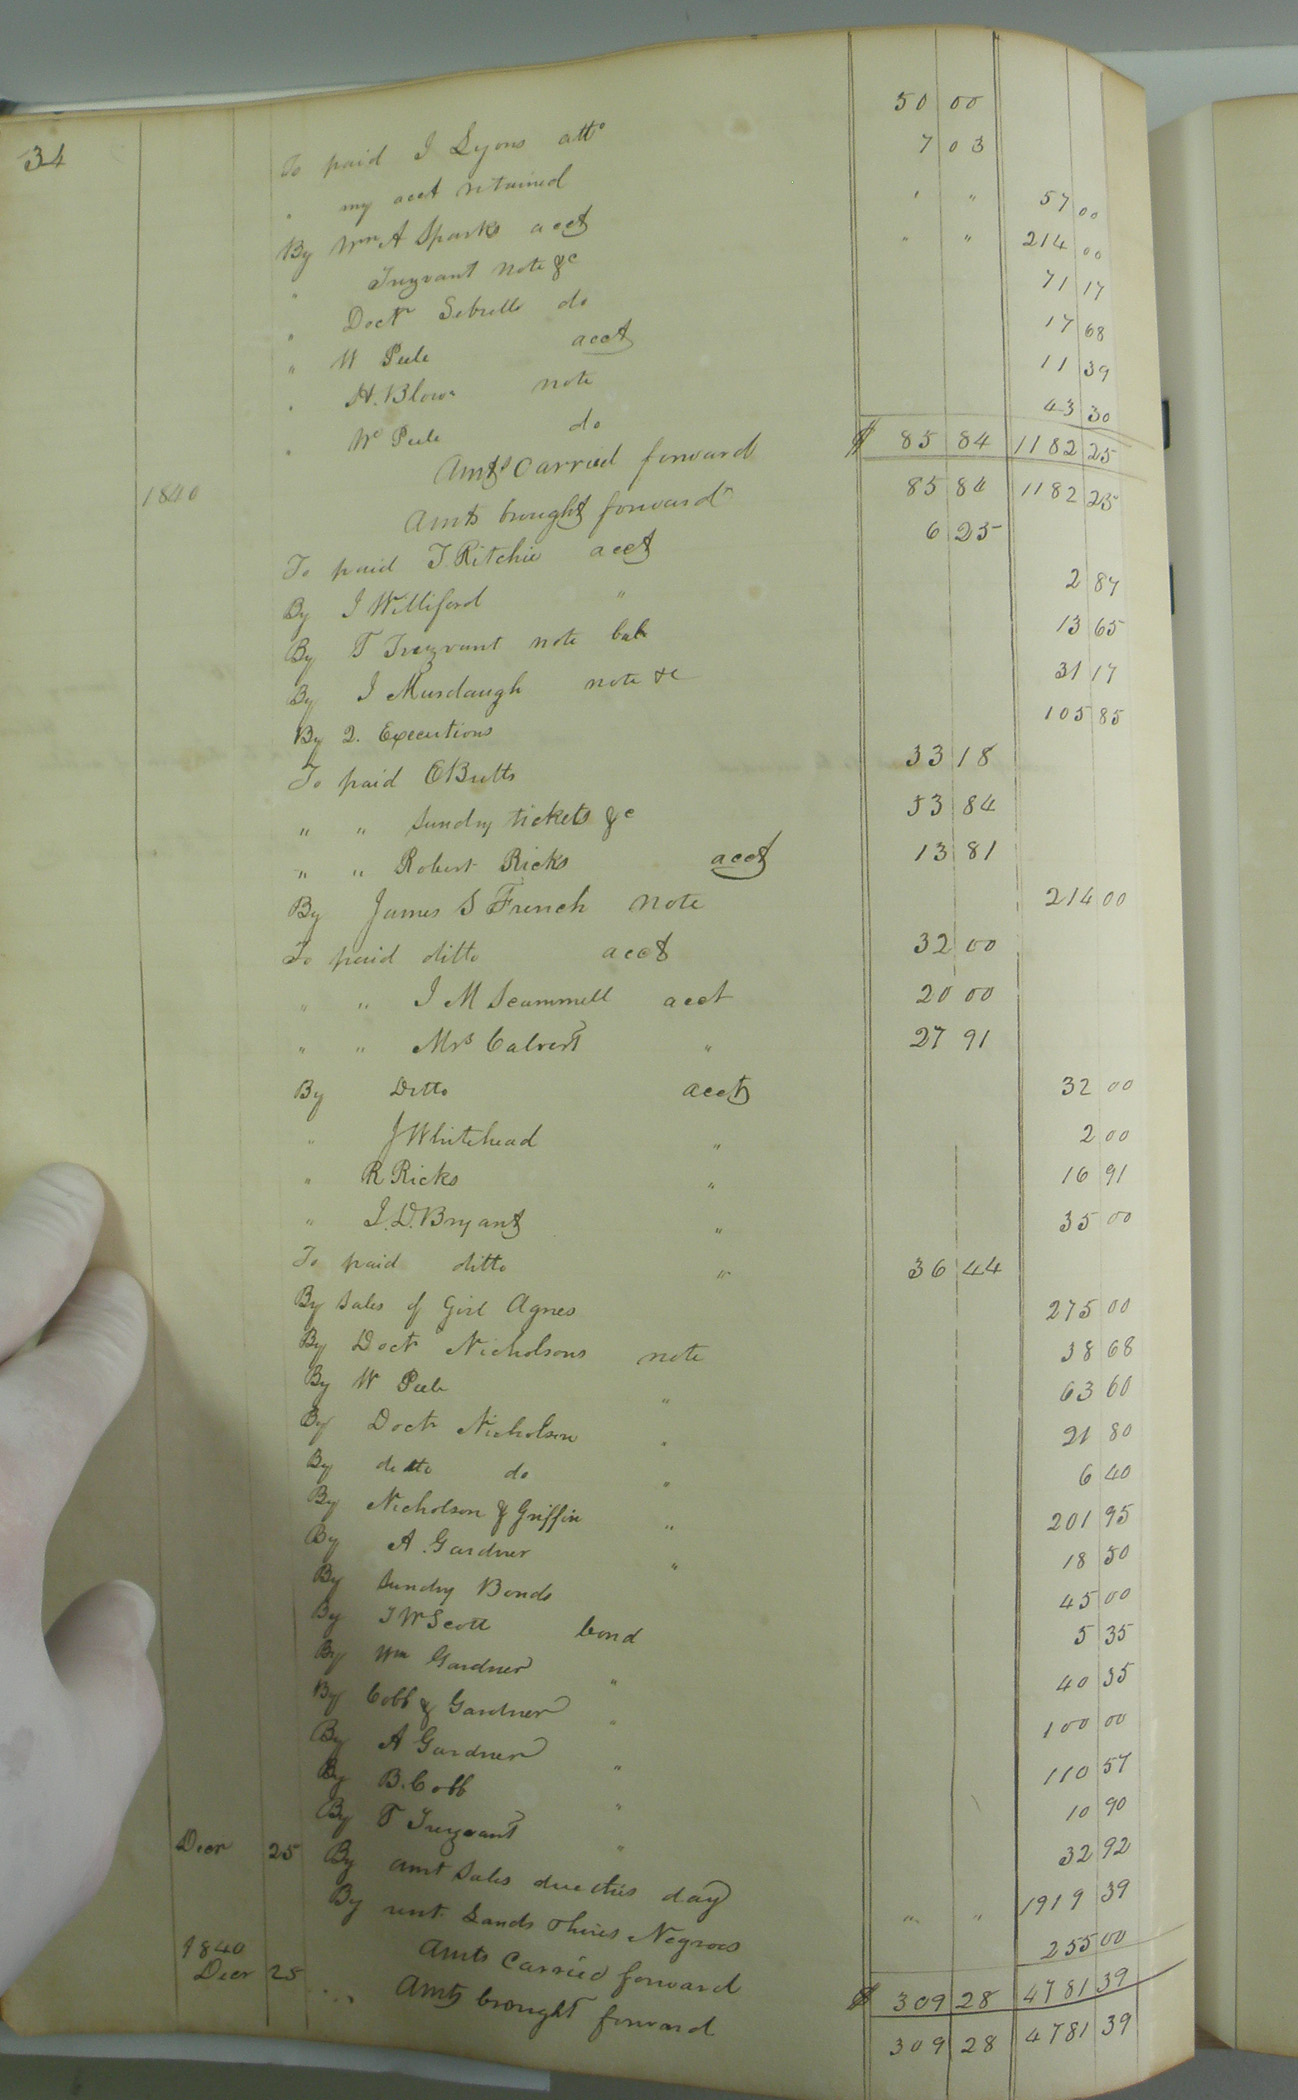 34
To paid J Lyons atto 50 00
" my acct retained 7 03
By Wm A Sparks acct " " 57 00
" Trezvant note &c " " 214 00
" Doctr Sebrells do 71 17
" W Peele acct 17 68
" H. Blow note 11 39
" Wo Peele do 43 30
Amts Carried forward $ 85 84 1182 25
1840 Amts brought forward 85 84 1182 25
To paid T. Ritchie acct 6 25
By J Williford " 2 87
By T Trezvant note bal 13 65
By J Murdaugh note &c 31 17
By 2. Executions 105 85
To paid E Butts 33 18
" " Sundry tickets &c 53 84
" " Robert Ricks acct 13 81
By James S French note 214 00
To paid ditto acct 32 00
" " J M Scammell acct 20 00
" " Mrs Calvert " 27 91
By Ditto acct 32 00
" J Whitehead " 2 00
" R Ricks " 16 91
" J. D. Bryant " 35 00
To paid ditto " 36 44
By Sales of Girl Agnes 275 00
By Doctr Nicholsons note 38 68
By W Peele " 63 60
By Doctr Nicholson " 21 80
By ditto do " 6 40
By Nicholson & Griffin " 201 95
By A. Gardner " 18 50
By Sundry Bonds 45 00
By J W Scott bond 5 35
By Wm Gardner " 40 35
By Cobb & Gardner " 100 00
By A Gardner " 110 57
By B. Cobb " 10 90
By T Trezvant " 32 92
Decr 25 By amt Sales due this day 1919 39
By rent Lands & hires Negroes " " 255 00
Amts Carried forward $ 309 28 4781 39
1840
Decr 25 Amts brought forward 309 28 4781 39